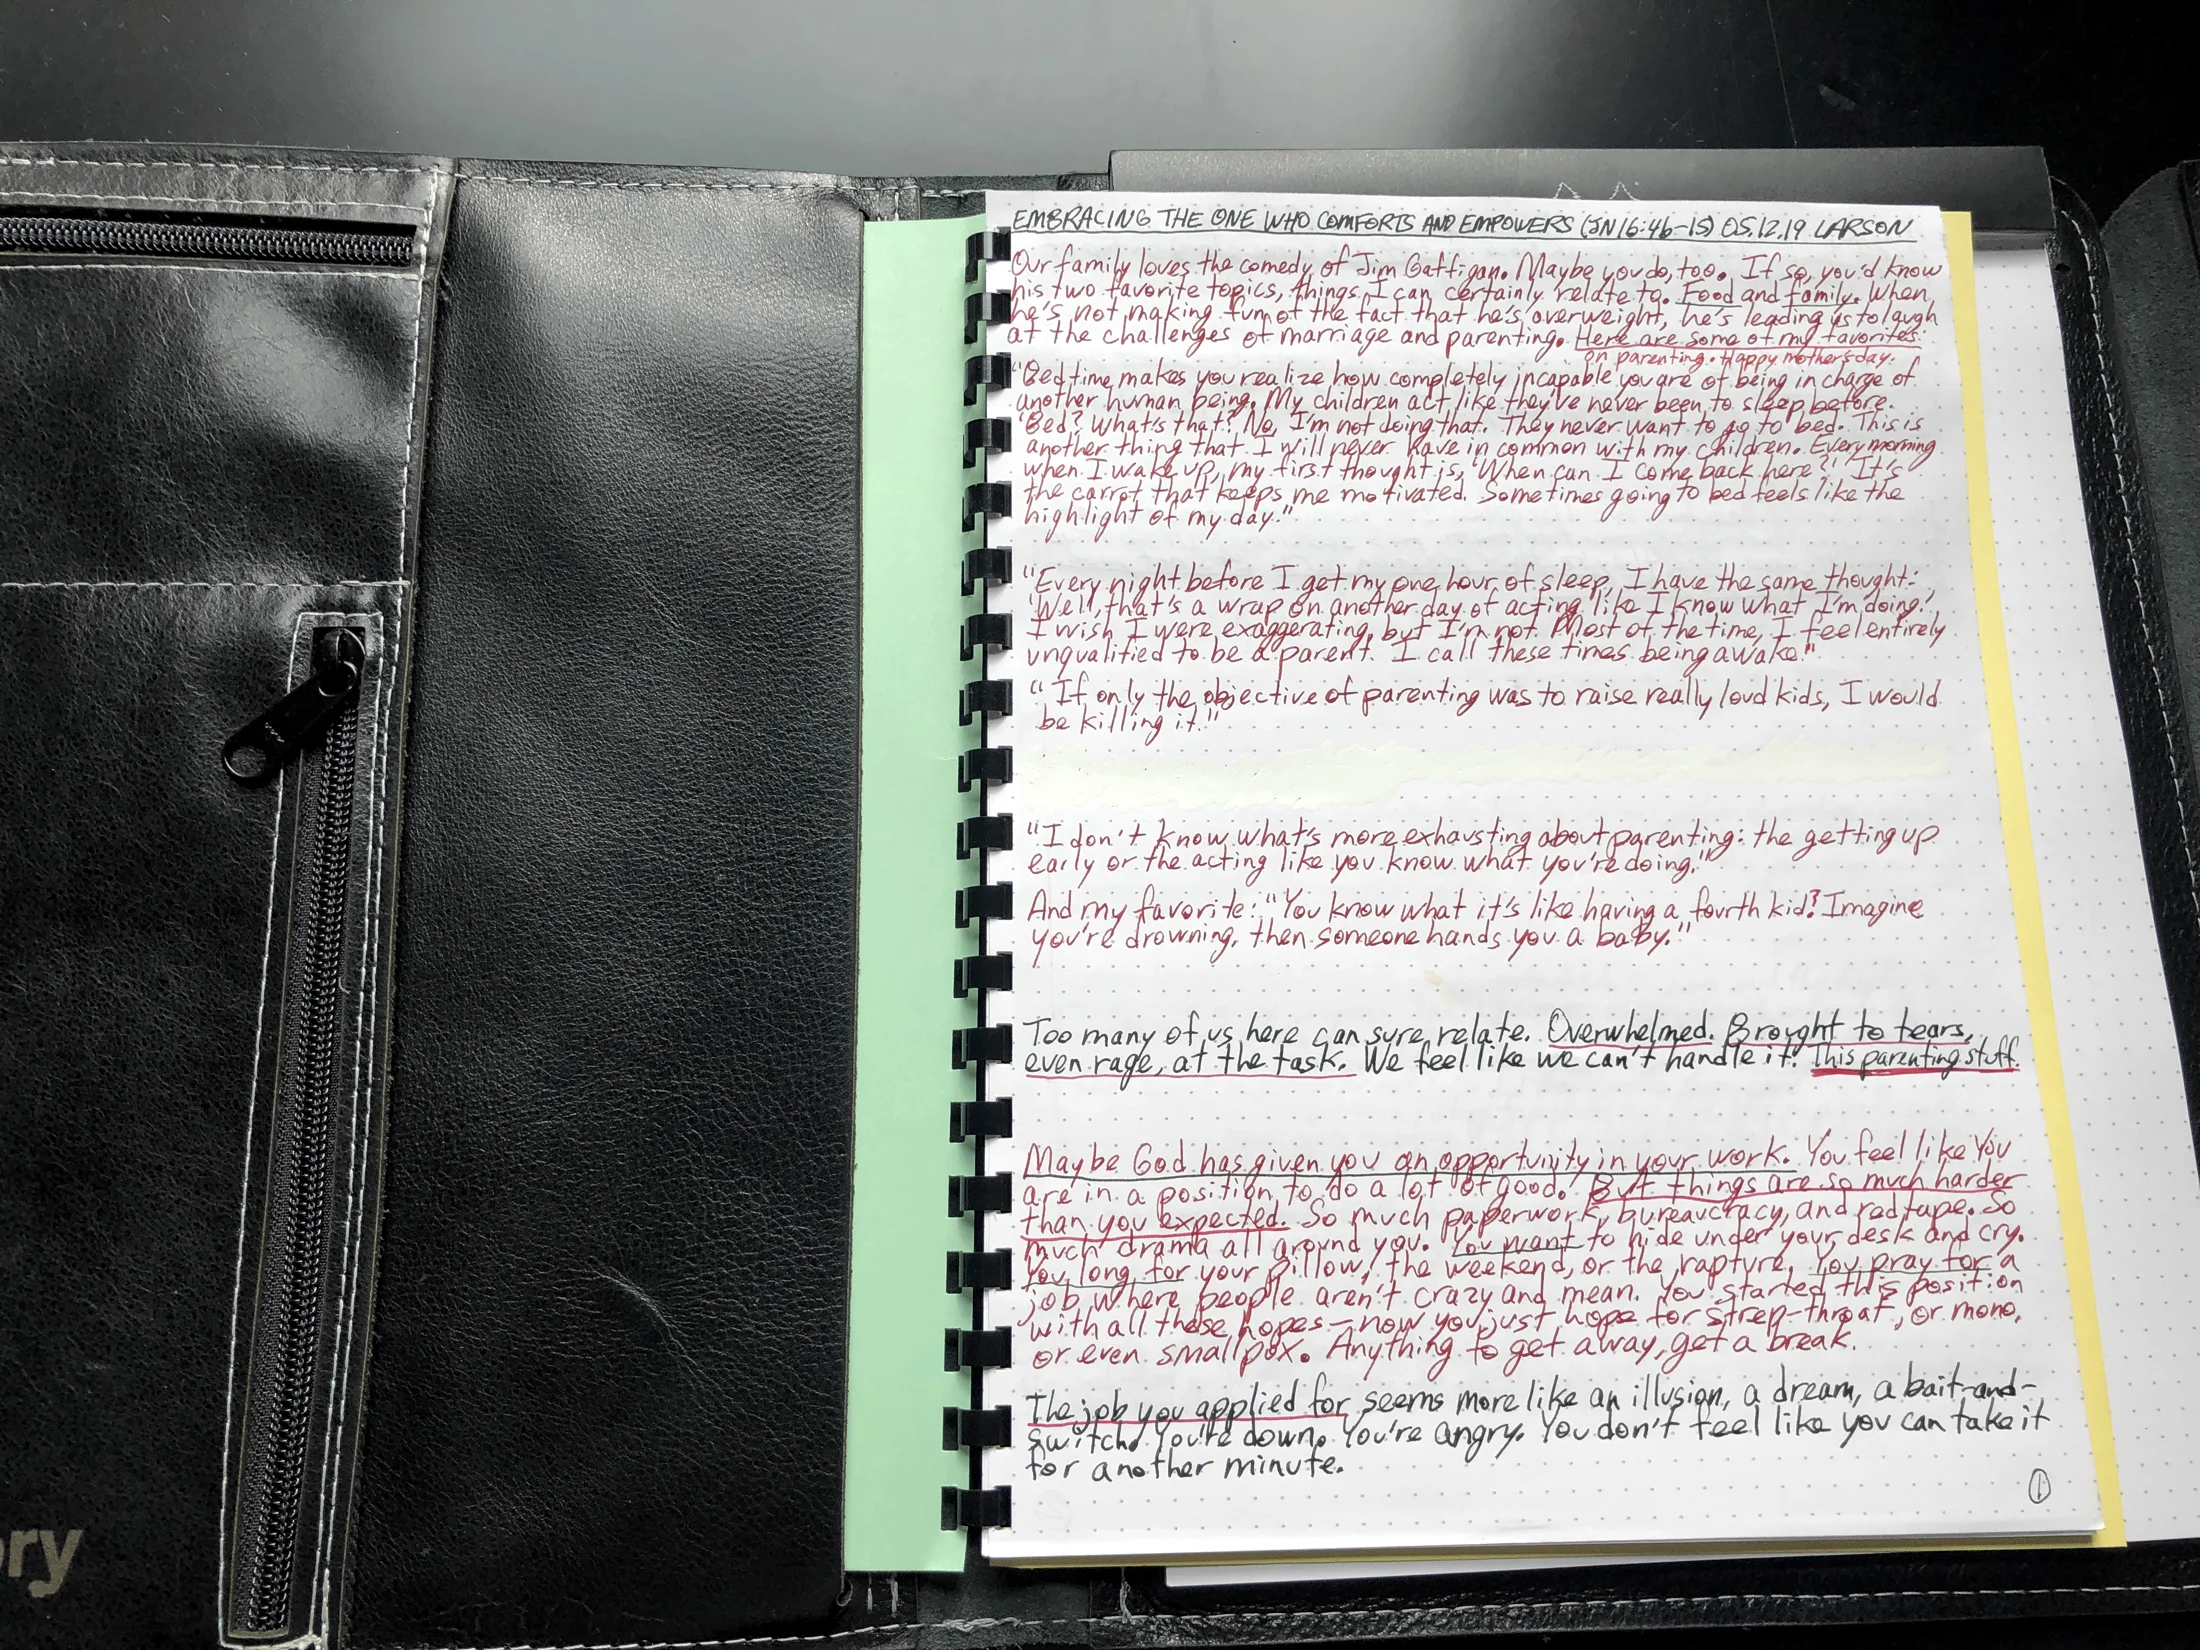 EMBRACING THE ONE WHO COMFORTS AND EMPOWERS (JN 16:4b-15) 05.12.19 LARSON
Our family loves the comedy of Jim Gaffigan. Maybe you do, too. If so, you'd know
his two favorite topics, things I can certainly relate to. Food and family. When
he's not making fun of the fact that he's overweight, he's leading us to laugh
at the challenges of marriage and parenting. Here are some of my favorites:
on parenting. Happy mother's day.
"Bedtime makes you realize how completely incapable you are of being in charge of
another human being. My children act like they've never been to sleep before.
'Bed? What's that? No, I'm not doing that. They never want to go to bed. This is
another thing that I will never have in common with my children. Every morning
when I wake up, my first thought is, 'When can I come back here?' It's
the carrot that keeps me motivated. Sometimes going to bed feels like the
highlight of my day."
"Every night before I get my one hour of sleep, I have the same thought:
'Well, that's a wrap on another day of acting like I know what I'm doing.'
I wish I were exaggerating, but I'm not. Most of the time, I feel entirely
unqualified to be a parent. I call these times being awake."
"If only the objective of parenting was to raise really loud kids, I would
be killing it."
"I don't know what's more exhausting about parenting: the getting up
early or the acting like you know what you're doing."
And my favorite: "You know what it's like having a fourth kid? Imagine
you're drowning, then someone hands you a baby."
Too many of us here can sure relate. Overwhelmed. Brought to tears,
even rage, at the task. We feel like we can't handle it. This parenting stuff.
Maybe God has given you an opportunity in your work. You feel like You
are in a position to do a lot of good. But things are so much harder
than you expected. So much paperwork, bureaucracy, and red tape. So
much drama all around you. You want to hide under your desk and cry.
You long for your pillow, the weekend, or the rapture. You pray for a
job where people aren't crazy and mean. You started this position
with all these hopes—now you just hope for strep-throat, or mono,
or even smallpox. Anything to get away, get a break.
The job you applied for seems more like an illusion, a dream, a bait-and-
switch. You're down. You're angry. You don't feel like you can take it
for another minute.
1
ory